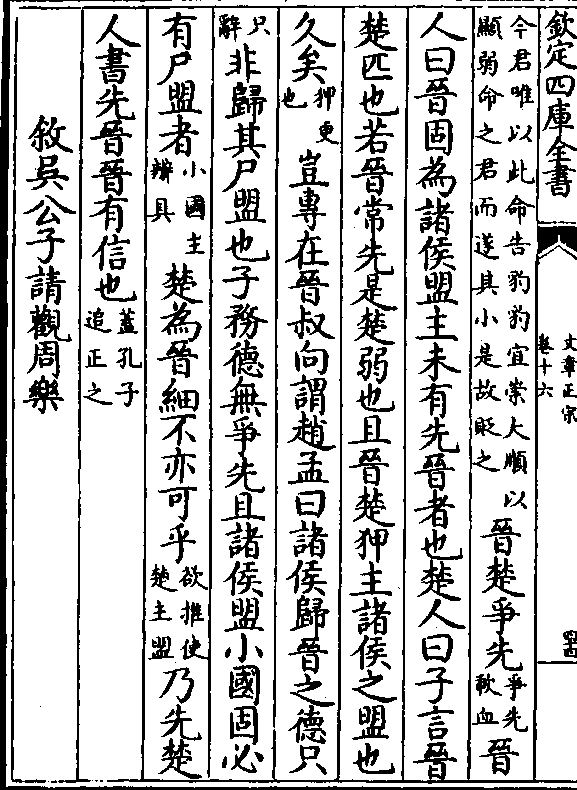 欽定四庫全書
文章正宗
卷十六
今君唯以此命告豹豹宜崇大順以
顯弱命之君而遂其小是故貶之
晉楚爭先
爭先
歃血
晉
人曰晉固為諸侯盟主未有先晉者也楚人曰子言晉
楚匹也若晉常先是楚弱也且晉楚狎主諸侯之盟也
久矣
狎更
也
豈專在晉叔向謂趙孟曰諸侯歸晉之德只
只
辭
非歸其尸盟也子務德無爭先且諸侯盟小國固必
有尸盟者
小國主
辨具
楚為晉細不亦可乎
欲推使
楚主盟
乃先楚
人書先晉晉有信也
蓋孔子
追正之
敘吳公子請觀周樂